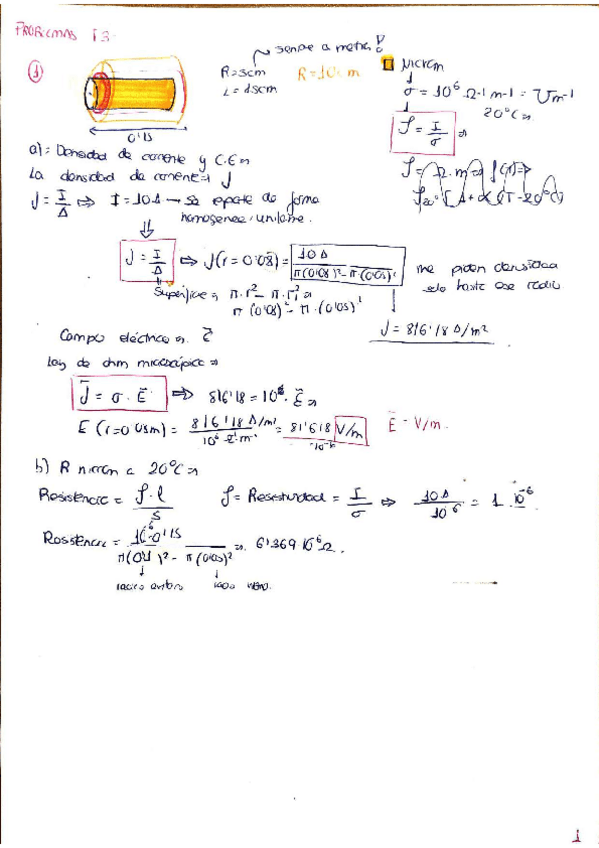 PROBLEMAS T3.
→ siempre a metros!
① R=5cm R=10cm Nicrom
L=15cm σ = 10⁶ Ω-1 m-1 = ℧m⁻¹
20ºC
0'15
ρ = I/σ
a) = Densidad de corriente y C.E
La densidad de corriente → J
J = I/A ⇒ I = 10A → se reparte de forma
homogenea/uniforme.
ρ20º [1 + α (T-20ºC)]
J = I/A ⇒ J(r=0'08) = 10A / π(0'08)² - π(0'05)² me piden densidad
solo hasta ese radio
Superficie = π·r² - π·r₁²
π(0'08)² - π·(0'05)²
J = 816'18 A/m²
Campo eléctrico
Ley de ohm microscópica
J = σ · E ⇒ 816'18 = 10⁶ · E
E (r=0'08m) = 816'18 A/m² / 10⁶ Ω⁻¹m⁻¹ = 816'18 V/m E = V/m.
b) R nicrom a 20ºC
Resistencia = ρ·l/S ρ = Resistividad = I/σ ⇒ 10A/10⁶ = 1·10⁻⁶
Resistencia = 10⁻⁶·0'15 / π(0'1)² - π(0'05)² = 6'369 10⁻⁶Ω.
1